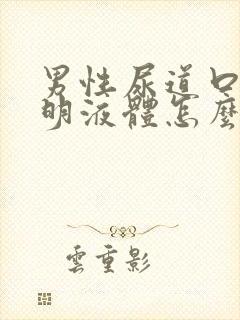 男性尿道口
明液體怎麼
雲重影